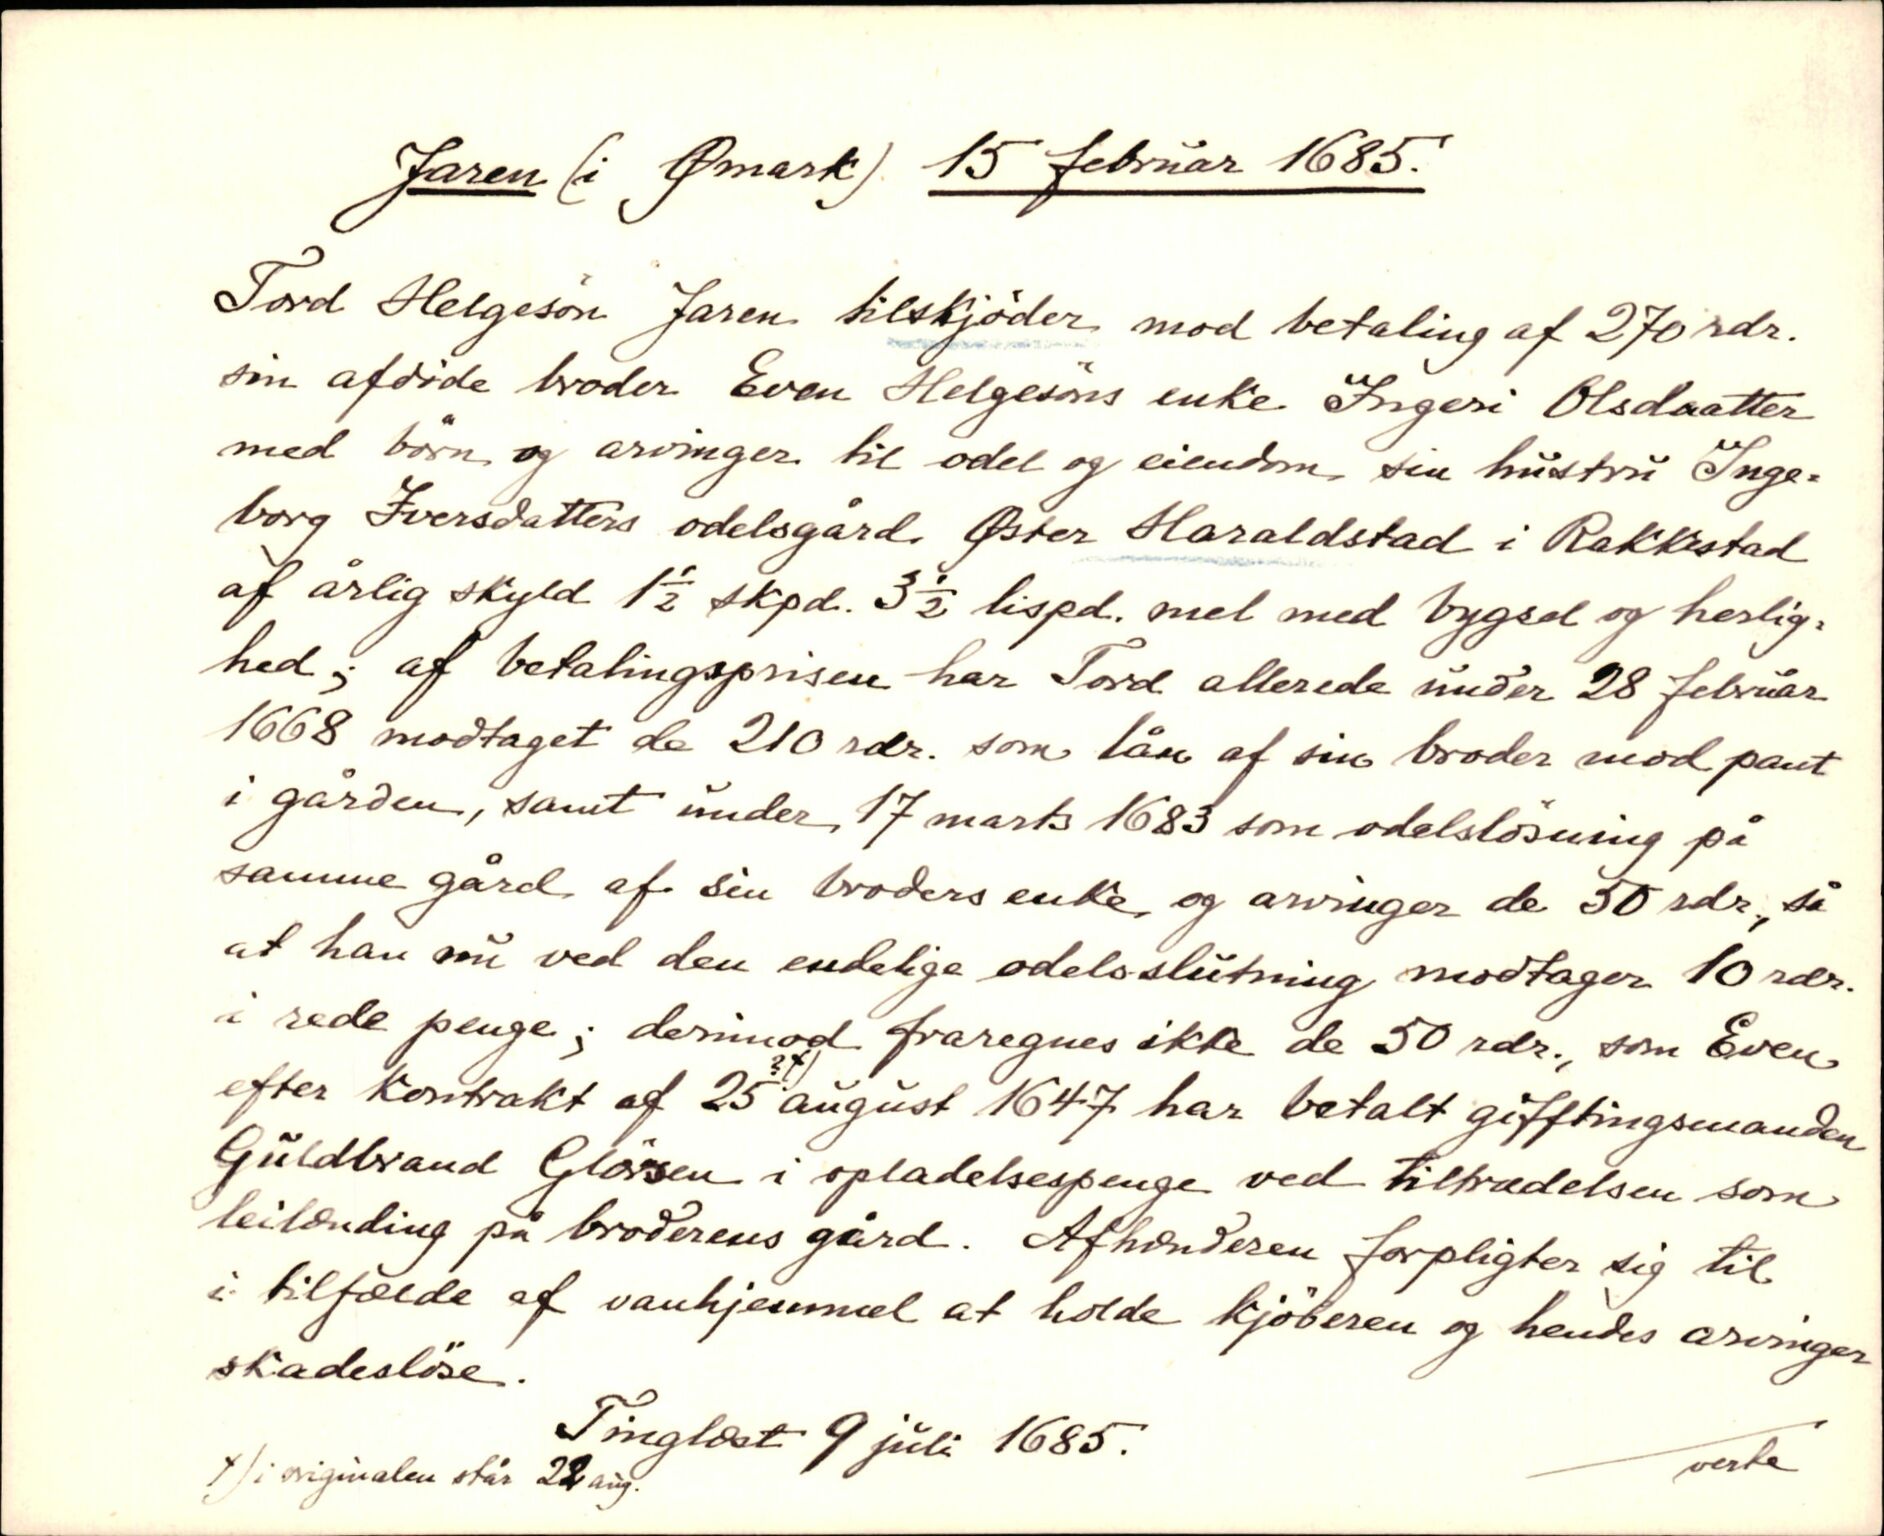 Jaren (i Ømark) 15 februar 1685.
Tord Helgesön Jaren tilskjöder mod betaling af 270 rdr.
sin afdöde broder Even Helgesöns enke Ingeri Olsdaatter
med börn og arvinger til odel og eiendom sin hustru Inge-
borg Iversdatters odelsgård Öster Haraldstad i Rakkestad
af årlig skyld 1½ skpd. 3½ lispd. mel med bygsel og herlig-
hed; af betalingsprisen har Tord allerede under 28 februar
1668 modtaget de 210 rdr. som lån af sin broder mod pant
i gården, samt under 17 marts 1683 som odelslösning på
samme gård af sin broders enke og arvinger de 50 rdr., så
at han nu ved den endelige odelsslutning modtager 10 rdr.
i rede penge; derimod fraregnes ikke de 50 rdr., som Even
efter kontrakt af 25 ?+) august 1647 har betalt gifftingsmanden
Guldbrand Glörsen i opladelsespenge ved tiltrædelsen som
leilænding på broderens gård. Afhænderen forpligter sig til
i tilfælde af vanhjemmel at holde kjöberen og hendes arvinger
skadeslöse.
Tinglæst 9 juli 1685.
+) i originalen står 22 aug.
verte